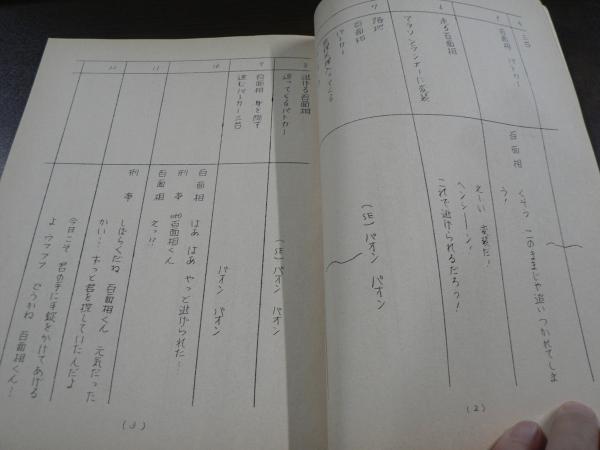 4
三台
5
百面相 パトカー
百面相
くそう このままじゃ追いつかれてしま
う!
6
走る百面相
マラソンランナーに変装
えーい 変装だ!
ヘンシーン!
これで逃げられるだろう!
7
路地
百面相
パトカー
(SE) パオン パオン
(2)
8
逃げる百面相
追ってくるパトカー
(SE) パオン パオン
9
百面相 身を隠す
進むパトカー三台
パオン パオン
10
百面相
はあ はあ やっと逃げられた…
刑事
百面相くん
11
百面相
えっ!?
12
刑事
しばらくだね 百面相くん 元気だった
かい… ずっと君を捜していたんだよ
今日こそ 君の手に手錠をかけてあげる
よ ウフフフ どうかね 百面相くん…!
(3)